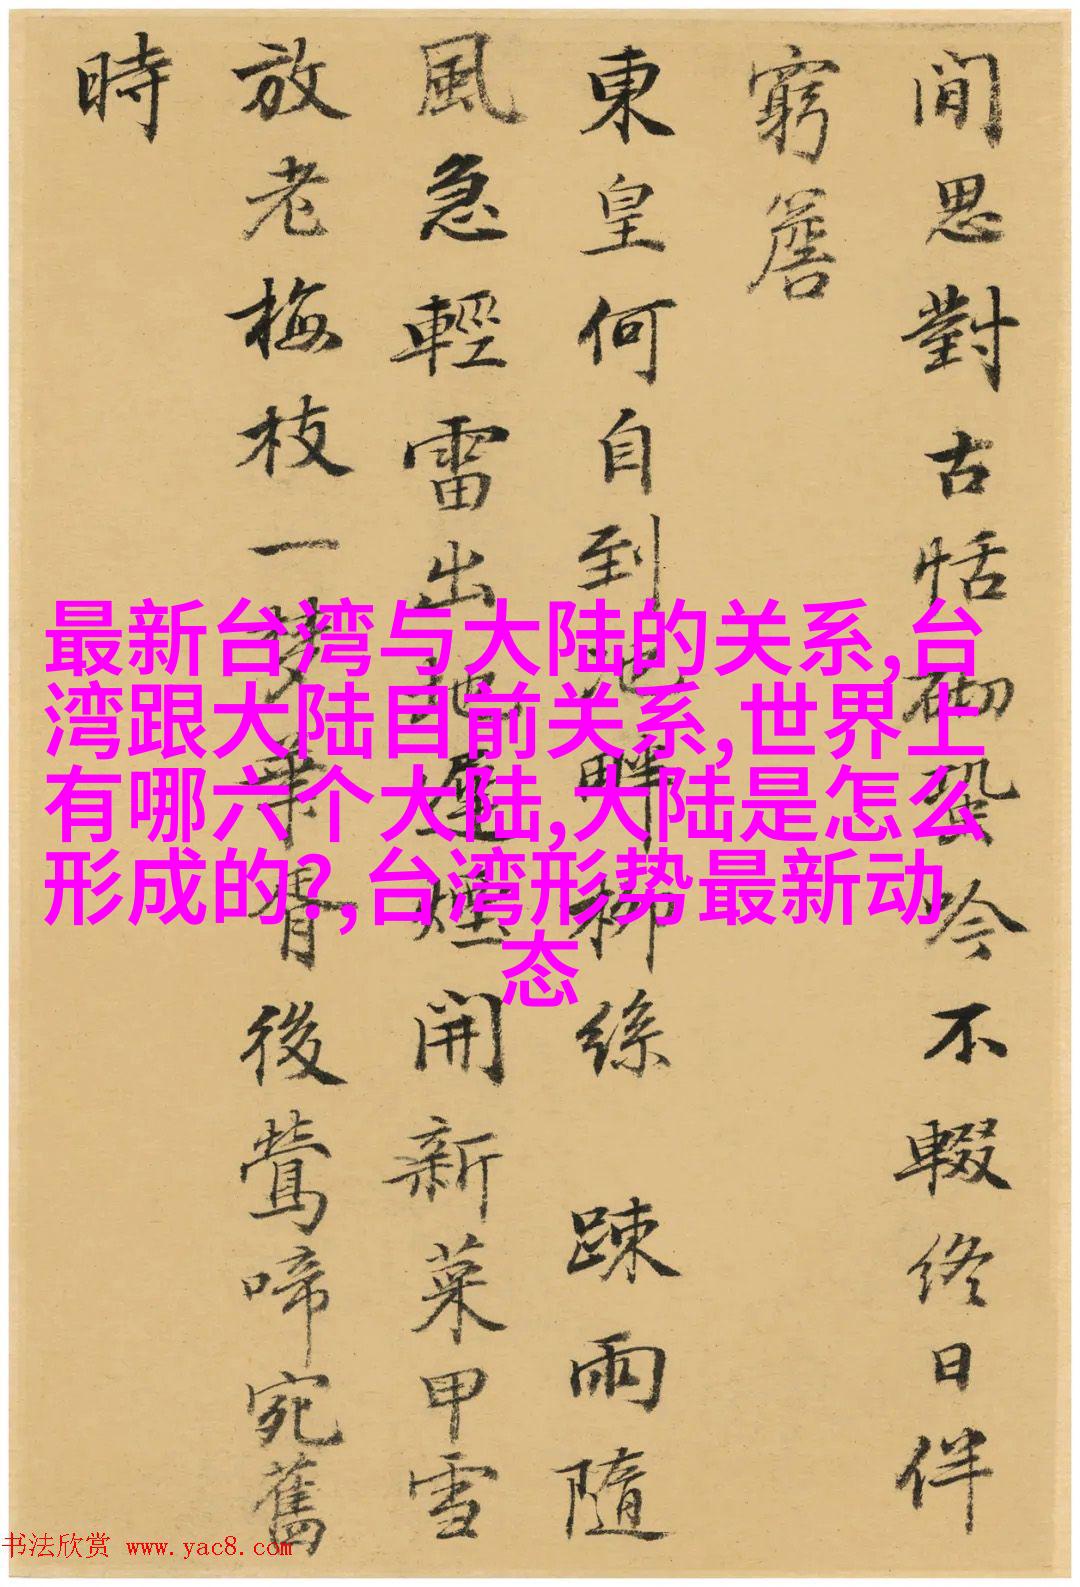 閒思對古恬砌蛩吟不輟終日伴
窮簷
東皇何自到池畔柳絲 踈雨隨
風急輕雷出地遲煙開新菜甲雪
放老梅枝一夢華胥後鶯啼宛舊
時
最新台湾与大陆的关系,台
湾跟大陆目前关系,世界上
有哪六个大陆,大陆是怎么
形成的?,台湾形势最新动
态
书法欣赏 www.yac8.com